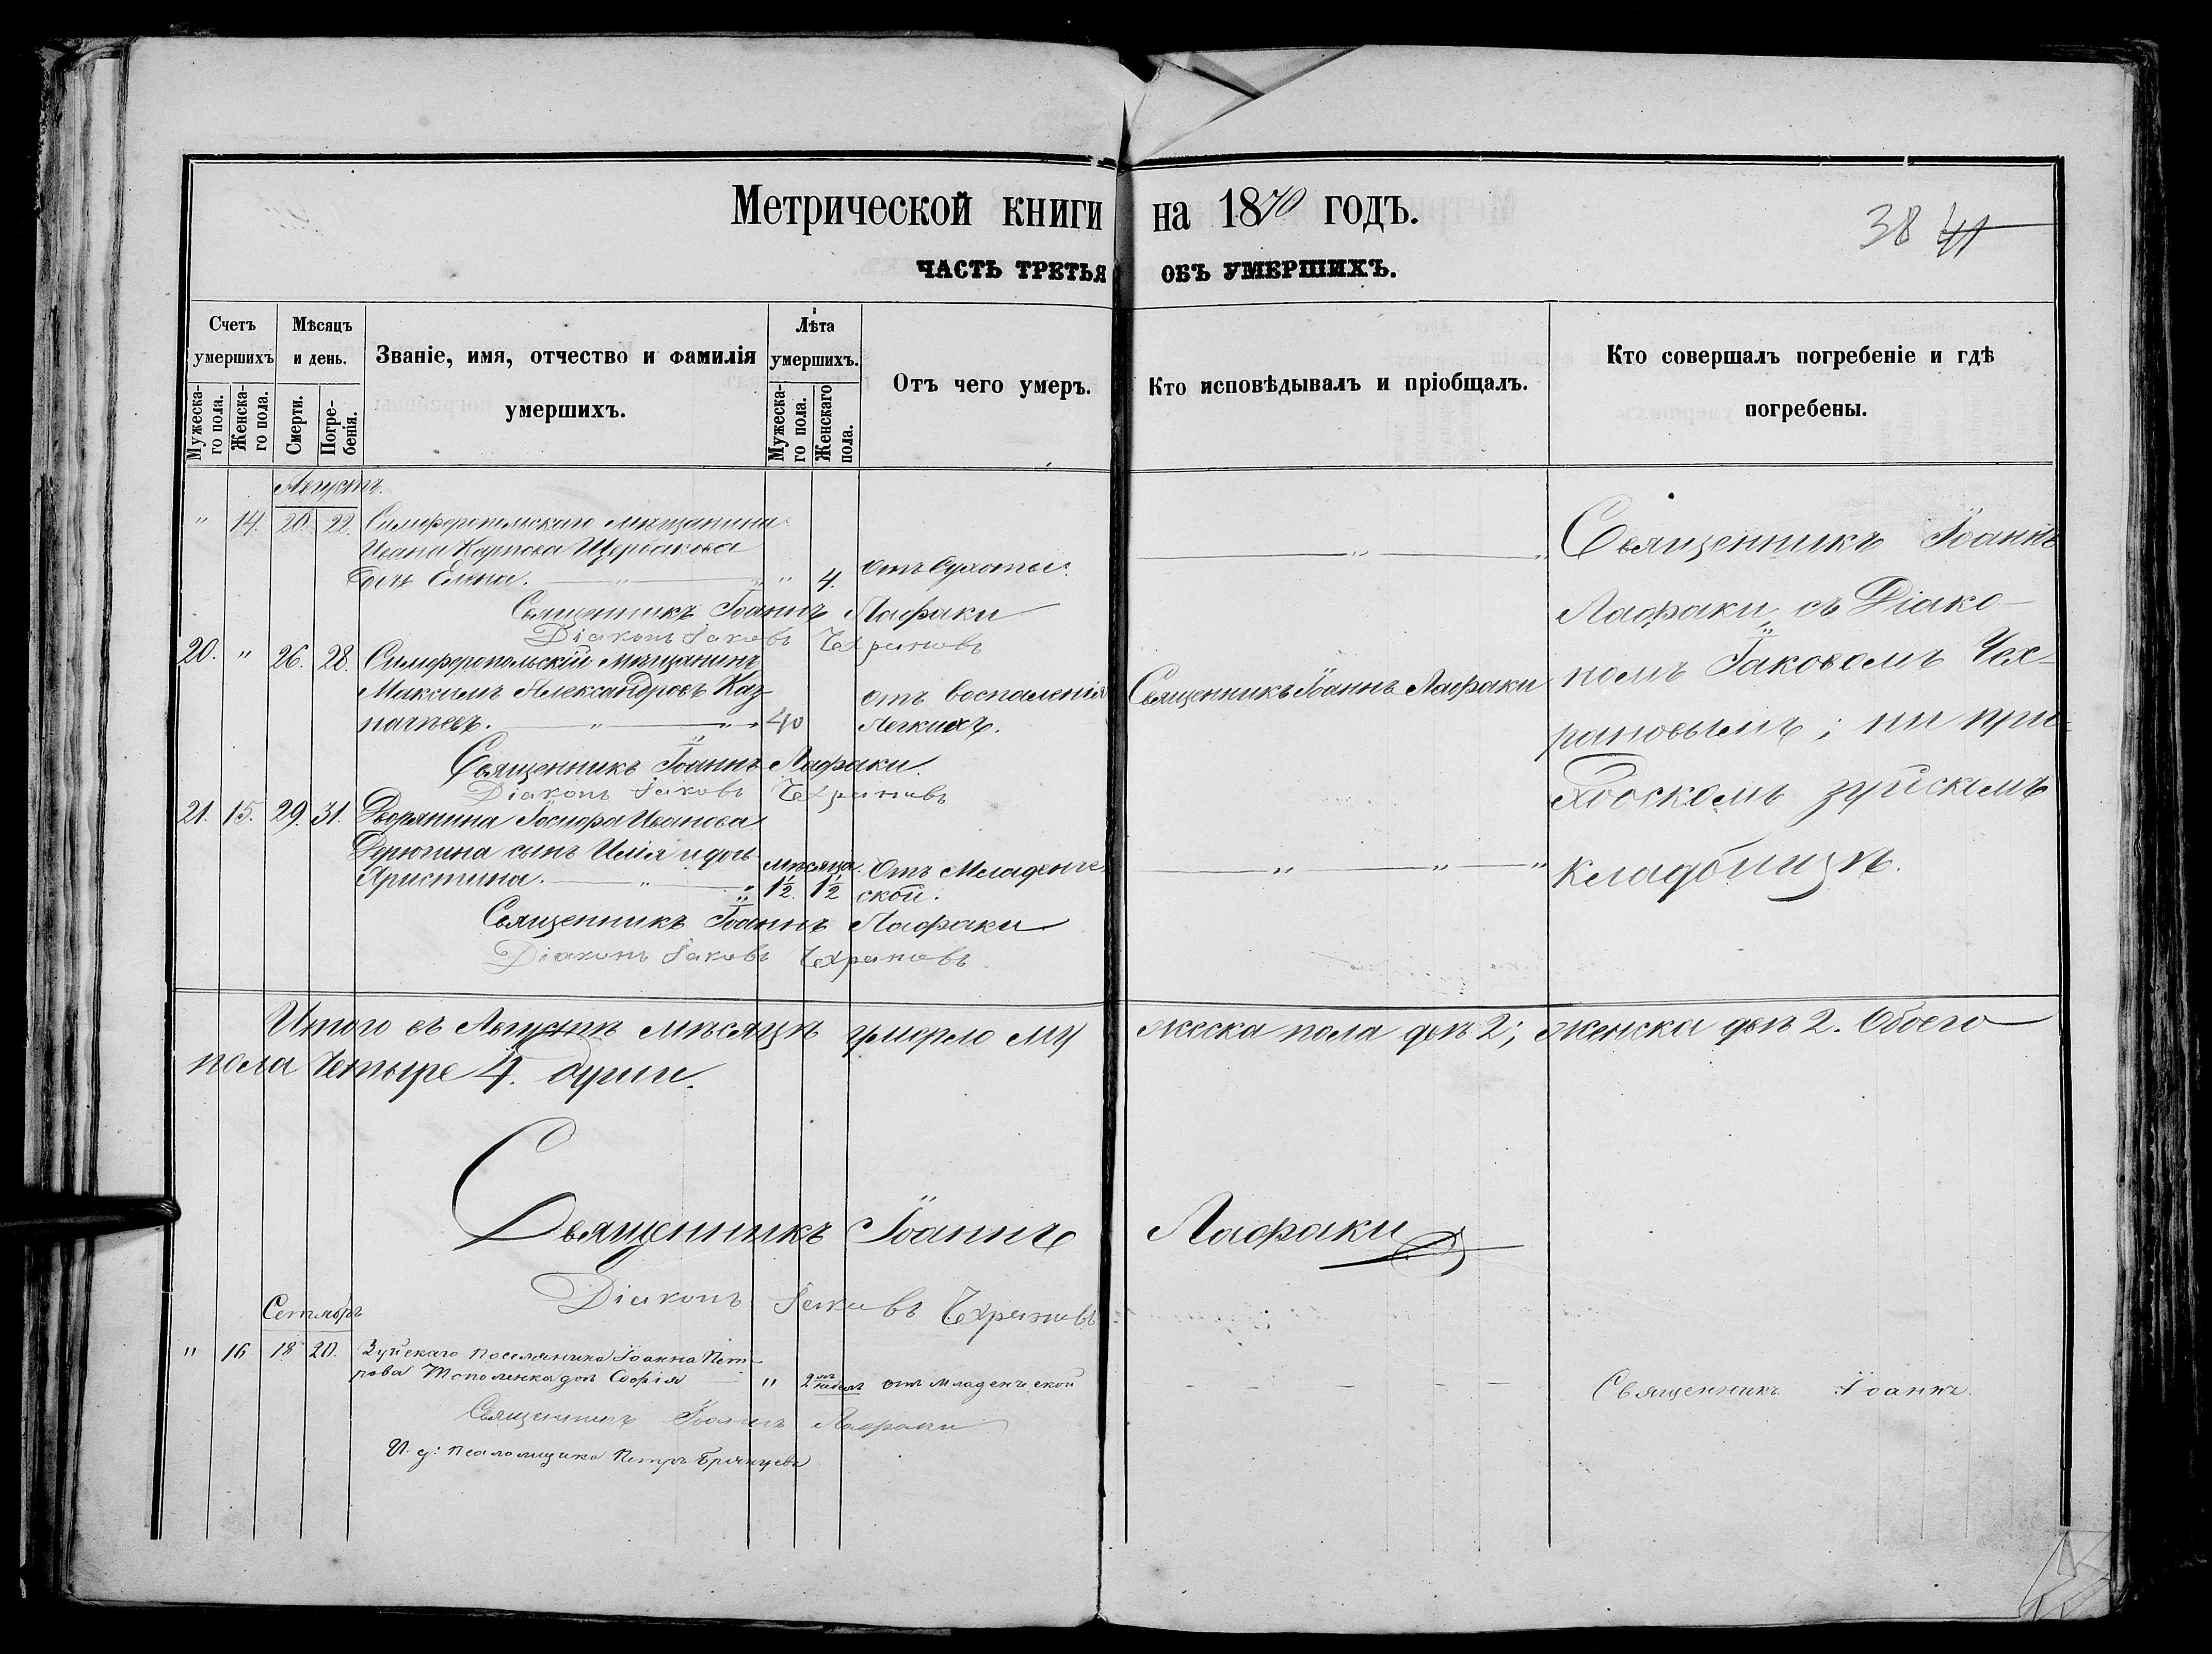 Метрической книги на 1870 годъ.
38 41
ЧАСТЬ ТРЕТЬЯ ОБЪ УМЕРШИХЪ.
Счетъ умершихъ
Мужеска-го пола.
Женска-го пола.
Мѣсяцъ и день.
Смерти.
Погре-бенія.
Званіе, имя, отчество и фамилія умершихъ.
Лѣта умершихъ.
Мужеска-го пола.
Женскаго пола.
Отъ чего умеръ.
Кто исповѣдывалъ и пріобщалъ.
Кто совершалъ погребеніе и гдѣ погребены.
Августъ.
" 14. 20. 22. Симферопольскаго мѣщанина
Ивана Карпова Щербакова
дочь Елена. " " 4. отъ Сухоты.
Священникъ Іоаннъ Лафаки
Діаконъ Іаковъ Чехрановъ
20. " 26. 28. Симферопольскій мѣщанинъ
Максимъ Александровъ Каз-
начеевъ. " " 40 отъ воспаленія
Легкихъ.
Священникъ Іоаннъ Лафаки
Священникъ Іоаннъ Лафаки.
Діаконъ Іаковъ Чехрановъ
21. 15. 29. 31. Дворянина Іосифа Иванова
Дерюгина сынъ Илія и дочь
Христина. " " мѣсяца. 1½. 1½ Отъ Младенче-
ской.
Священникъ Іоаннъ Лафаки
Діаконъ Іаковъ Чехрановъ
Священникъ Іоаннъ
Лафаки съ Діако-
номъ Іаковомъ Чех-
рановымъ; на при-
ходскомъ зуйскомъ
кладбищѣ.
Итого въ Августѣ мѣсяцѣ умерло му жеска пола двѣ 2; женска двѣ 2. Обоего
пола Четыре 4. души.
Священникъ Іоаннъ Лафаки
Діаконъ Іаковъ Чехрановъ
Сентябрь
" 16 18 20. Зуйскаго поселянина Іоанна Пет-
рова Тополенка дочь Софія " 2 недѣл отъ младенческой
Священникъ Іоаннъ
Священникъ Іоаннъ Лафаки
И. д: Псаломщика Петръ Брянцевъ